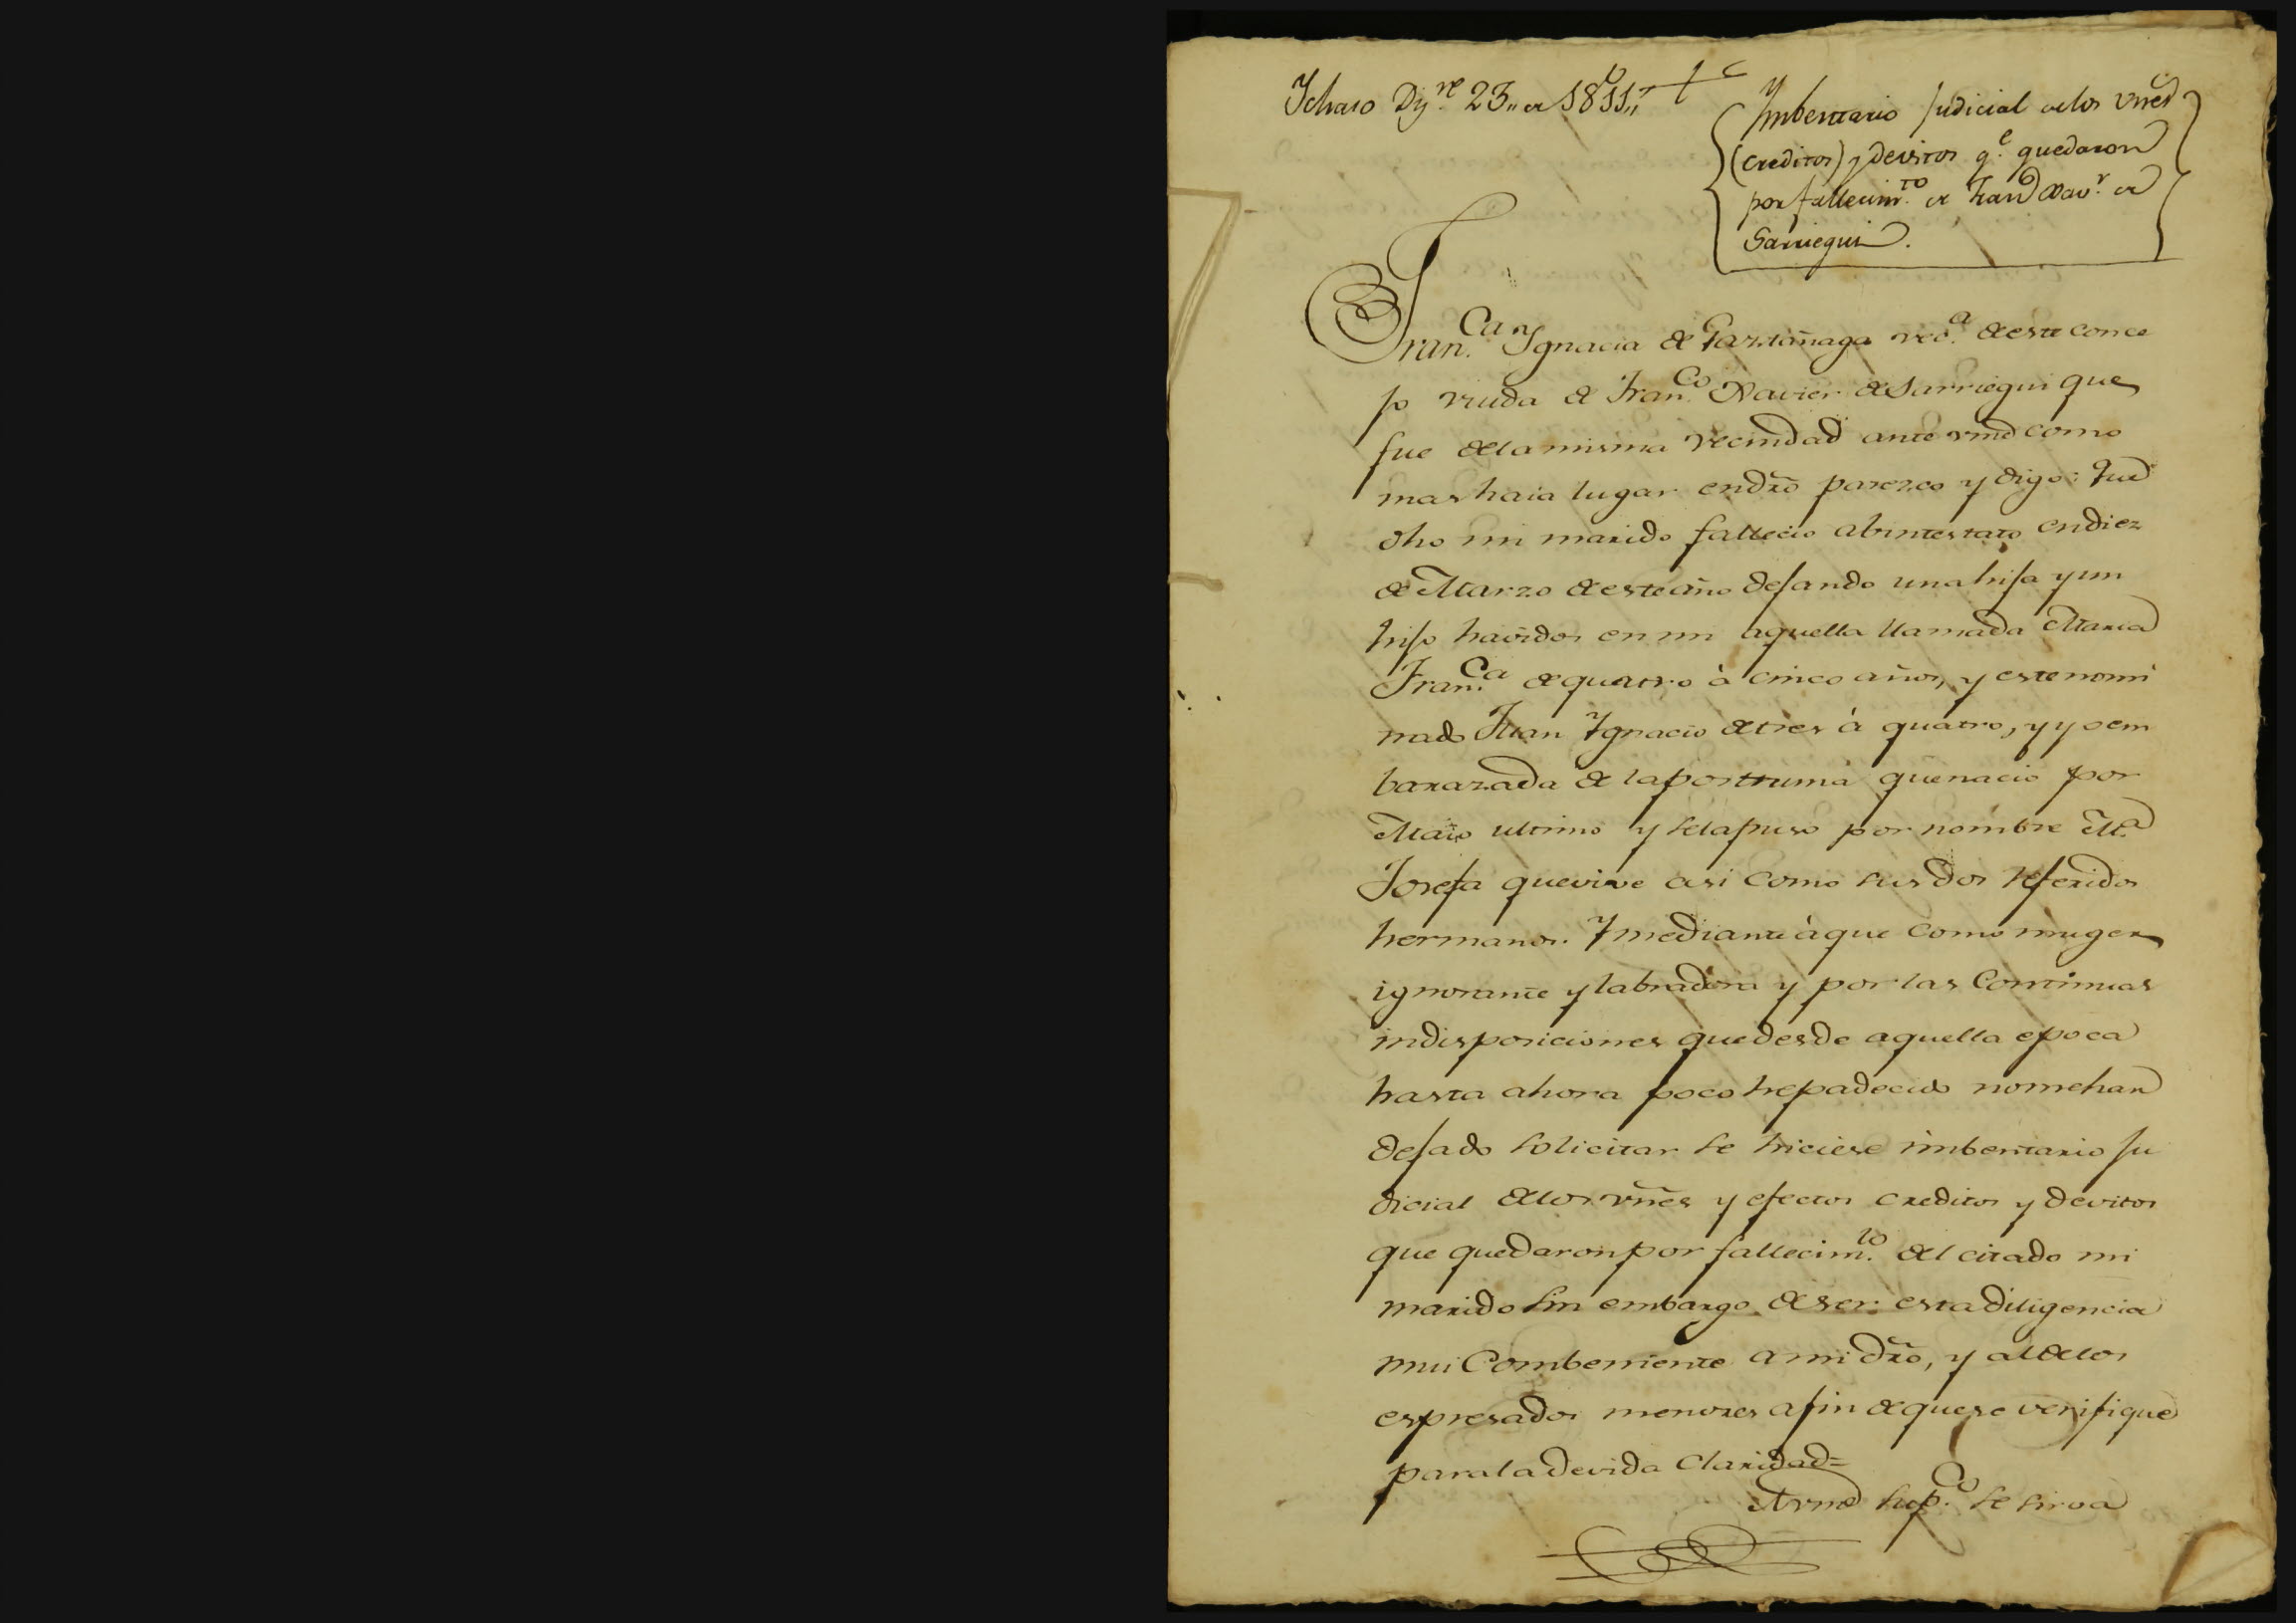 Ichaso Dizre 23,, de 1811,,
Ymbentario Judicial de los vnes
(creditos) y devitos q.e quedaron
por fallecim.to de Franco Xav.r de
Sarriegui.
Fran.ca Ygnacia de Gaztañaga vec.a de este conce
jo viuda de Fran.co Xavier de Sarriegui que
fue de la misma vecindad ante vmd como
mas haia lugar en dro parezco y digo: Que
dho mi marido fallecio abintestato en diez
de Marzo de este año dejando una hija y un
hijo havidos en mi aquella llamada Maria
Fran.ca de quatro à cinco años, y este nomi
nado Juan Ygnacio de tres à quatro, y yo em
barazada de la posttuma que nacio por
Maio ultimo y se la puso por nombre M.a
Josefa que vive asi como sus dos referidos
hermanos. Y mediante à que como muger
ignorante y labradora y por las continuas
indisposiciones que desde aquella epoca
hasta ahora poco he padecido no me han
dejado solicitar se hiciese imbentario ju
dicial de los vñes y efectos creditos y devitos
que quedaron por fallecim.to del citado mi
marido sin embargo de ser esta diligencia
mui combeniente a mi dro, y al de los
espresados menores a fin de que se verifique
para la devida claridad=
A vmd sup.co se sirva